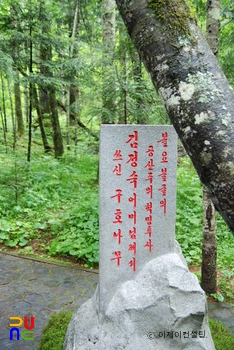 불요불굴의
공산주의혁명투사
김정숙어머님께서
쓰신 구호나무
ⓒ 이제이컨설팅